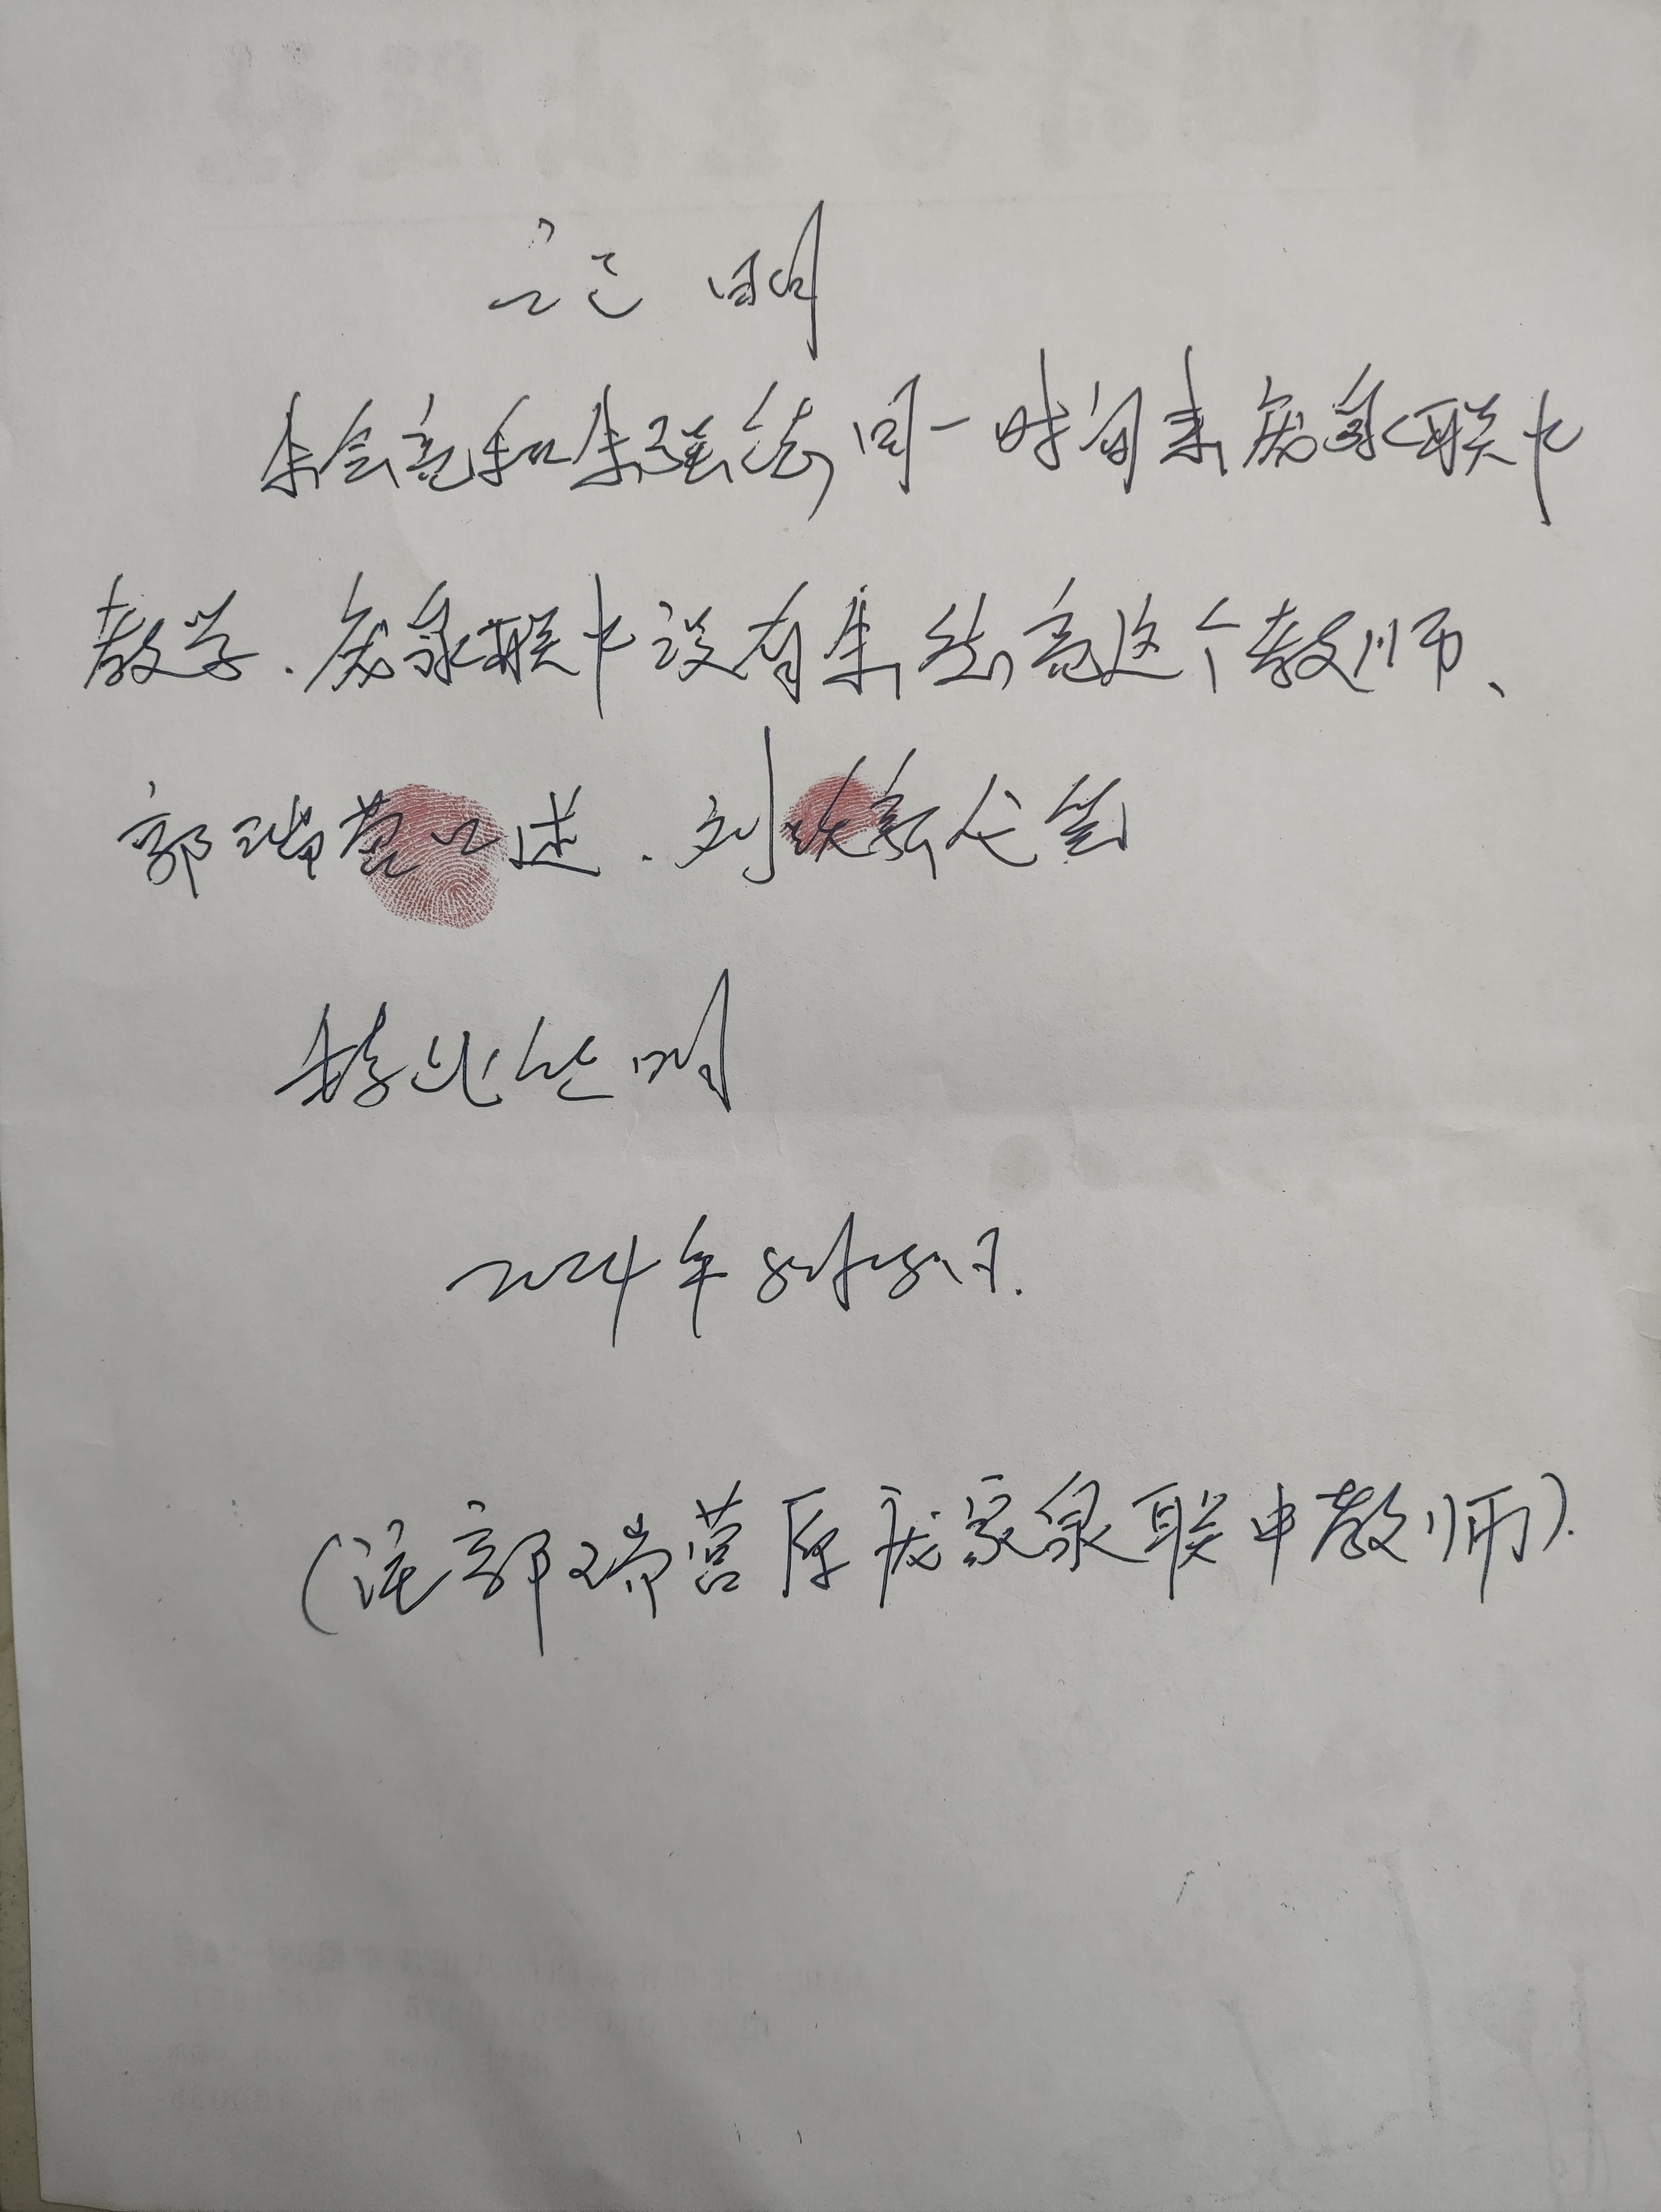 证明
朱会亮和朱强结同一时间来庞泉联中
教学.庞泉联中没有朱结亮这个教师、
郭瑞营口述.刘代笔
特此证明
2024年8月28日.
(注郭瑞营原庞家泉联中教师).